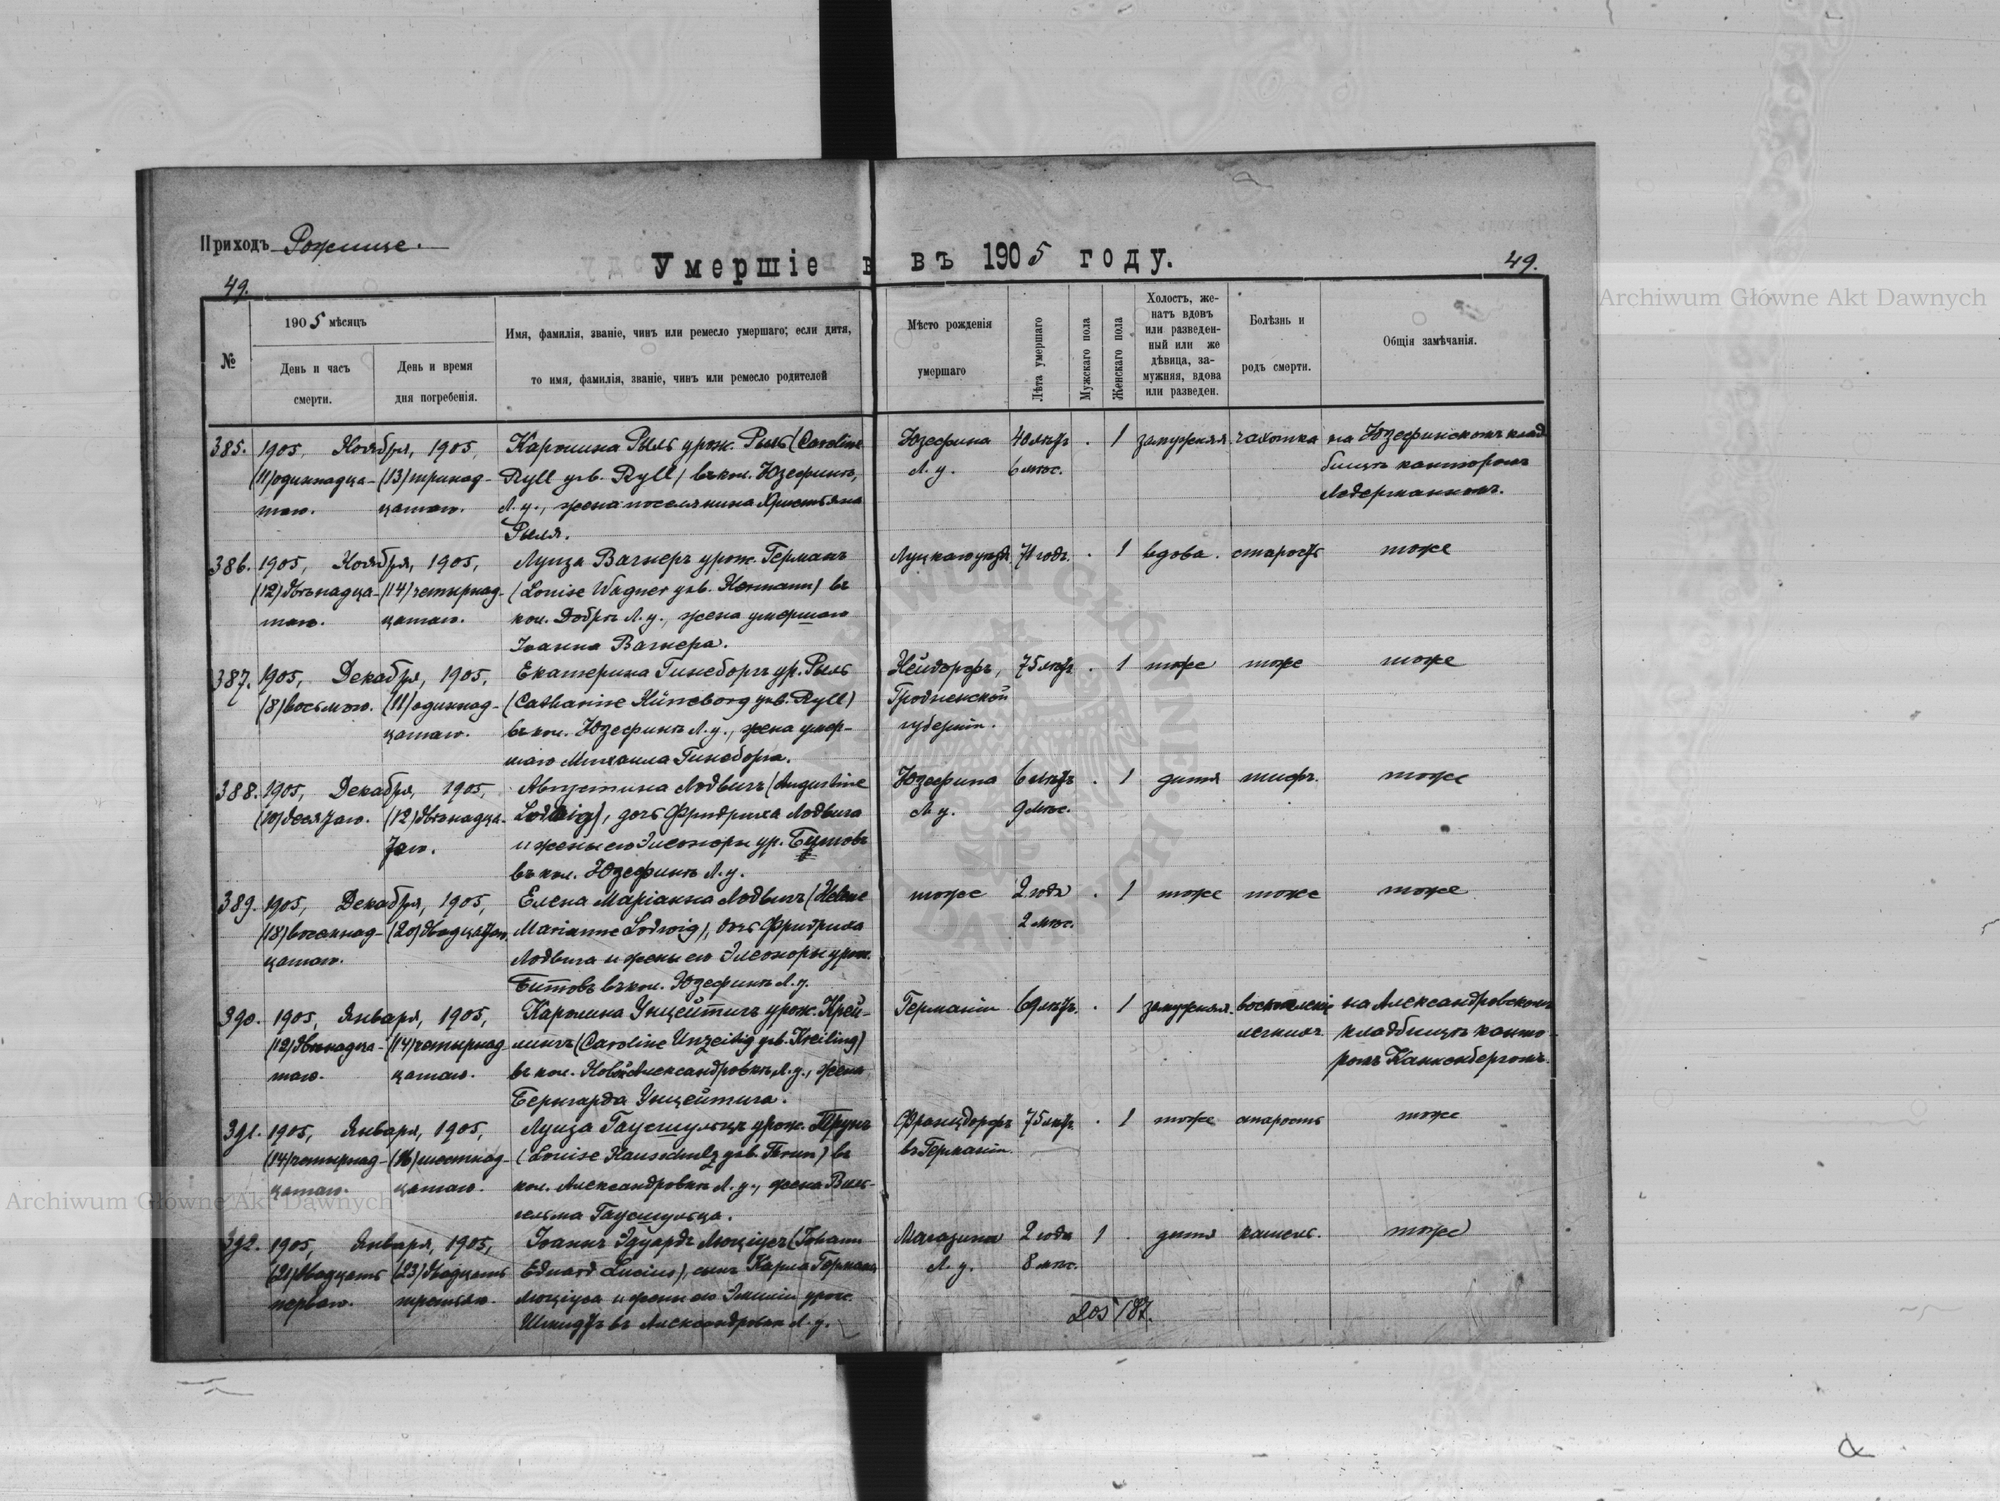 Приходъ Рожище.
Умершіе въ 1905 году.
49.
49.
№
1905 мѣсяцъ
День и часъ смерти.
День и время дня погребенія.
Имя, фамилія, званіе, чинъ или ремесло умершаго; если дитя,
то имя, фамилія, званіе, чинъ или ремесло родителей
Мѣсто рожденія
умершаго
Лѣта умершаго
Мужскаго пола
Женскаго пола
Холостъ, же-
натъ вдовъ
или разведен-
ный или же
дѣвица, за-
мужняя, вдова
или разведен.
Болѣзнь и
родъ смерти.
Общія замѣчанія.
385. 1905, Ноября, 1905, Каролина Рыль урож. Рыль (Caroline Юзефина 40 лѣтъ . 1 замужняя чахотка на Юзефинскомъ клад
(11) одиннадца- (13) тринад- Ryll geb. Ryll) въ кол. Юзефинѣ, Л. у. 6 мѣс. бищѣ канторомъ
таго. цатаго. Л. у., жена поселянина Христьяна
Рыля.
386. 1905, Ноября, 1905, Луиза Вагнеръ урож. Германъ Луцкаго уѣзда 71 годъ . 1 вдова . старость тоже
(12) двѣнадца- (14) четырнад- (Louise Wagner geb. Hermann) въ
таго. цатаго. кол. Л. у., жена умершаго
Іоанна Вагнера.
387. 1905, Декабря, 1905, Екатерина Гинеборгъ ур. Рыль Нейдорфъ, 75 лѣтъ . 1 тоже тоже тоже
(8) восьмого. (11) одиннад- (Catharine Hüneborg geb. Ryll) Гродненской
цатаго. въ кол. Юзефинѣ Л. у., жена умер- губерніи.
шаго Михаила Гинеборга.
388. 1905, Декабря, 1905, Августина Лодвигъ (Augustine Юзефина 6 лѣтъ . 1 дитя тифъ. тоже
(10) десятаго. (12) двѣнадца- Lodwig), дочь Фридриха Лодвига Л. у. 9 мѣс.
таго. и жены его Элеоноры ур.
въ кол. Юзефинѣ Л. у.
389. 1905, Декабря, 1905, Елена Маріанна Лодвигъ (Helene тоже 2 года . 1 тоже тоже тоже
(18) восемнад- (20) двадцатаго. Marianne Lodwig), дочь Фридриха 2 мѣс.
цатаго. Лодвига и жены его Элеоноры урож.
въ кол. Юзефинѣ Л. у.
390. 1905, Января, 1905, Каролина Унцейтигъ урож. Крей- Германіи 69 лѣтъ. . 1 замужняя. воспаленіе на Александровскомъ
(12) двѣнадца- (14) четырнад лингъ (Caroline Unzeitig geb. Kreiling) легкихъ. кладбищѣ канто-
таго. цатаго. въ кол. Л. у., жена ромъ
Бернгарда Унцейтига.
391. 1905, Января, 1905, Луиза Гаусшульцъ урож. 75 лѣтъ. . 1 тоже старость тоже
(14) четырнад- (16) шестнад- (Louise Hausschulz geb. ) въ въ Германіи.
цатаго. цатаго. кол. Александровкѣ Л. у., жена Виль-
гельма Гаусшульца.
392. 1905, Января, 1905, Іоаннъ Эдуардъ Люціусъ (Johann Л. у. 2 года 1 . дитя кашель. тоже
(21) двадцать (23) двадцать Eduard Lucius), сынъ Карла 8 мѣс.
перваго. третьяго. Люціуса и жены его Эмиліи урож.
Шмидтъ въ Александровкѣ Л. у.
205 187.
Archiwum Główne Akt Dawnych
Archiwum Główne Akt Dawnych